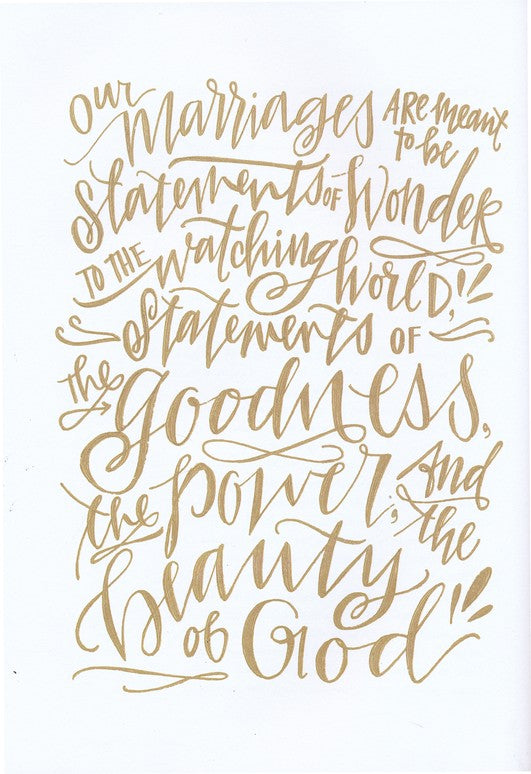 our marriages are meant to be
Statements of Wonder
to the watching World,
Statements of
the goodness,
the power, and the
beauty
of God